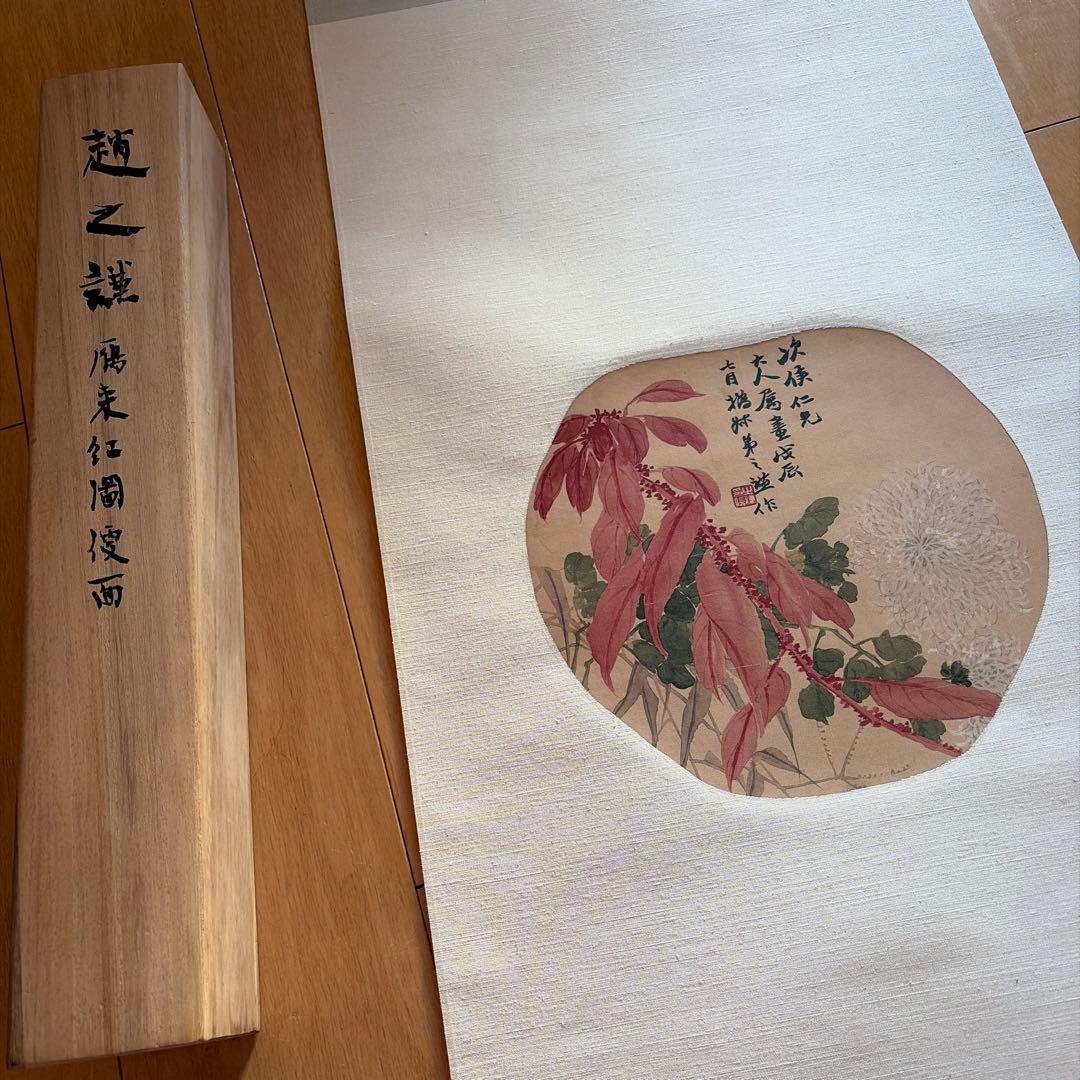 趙之謙雁来紅圖便面
次侯仁兄
大人属畫戊辰
七月撝叔弟之謙作